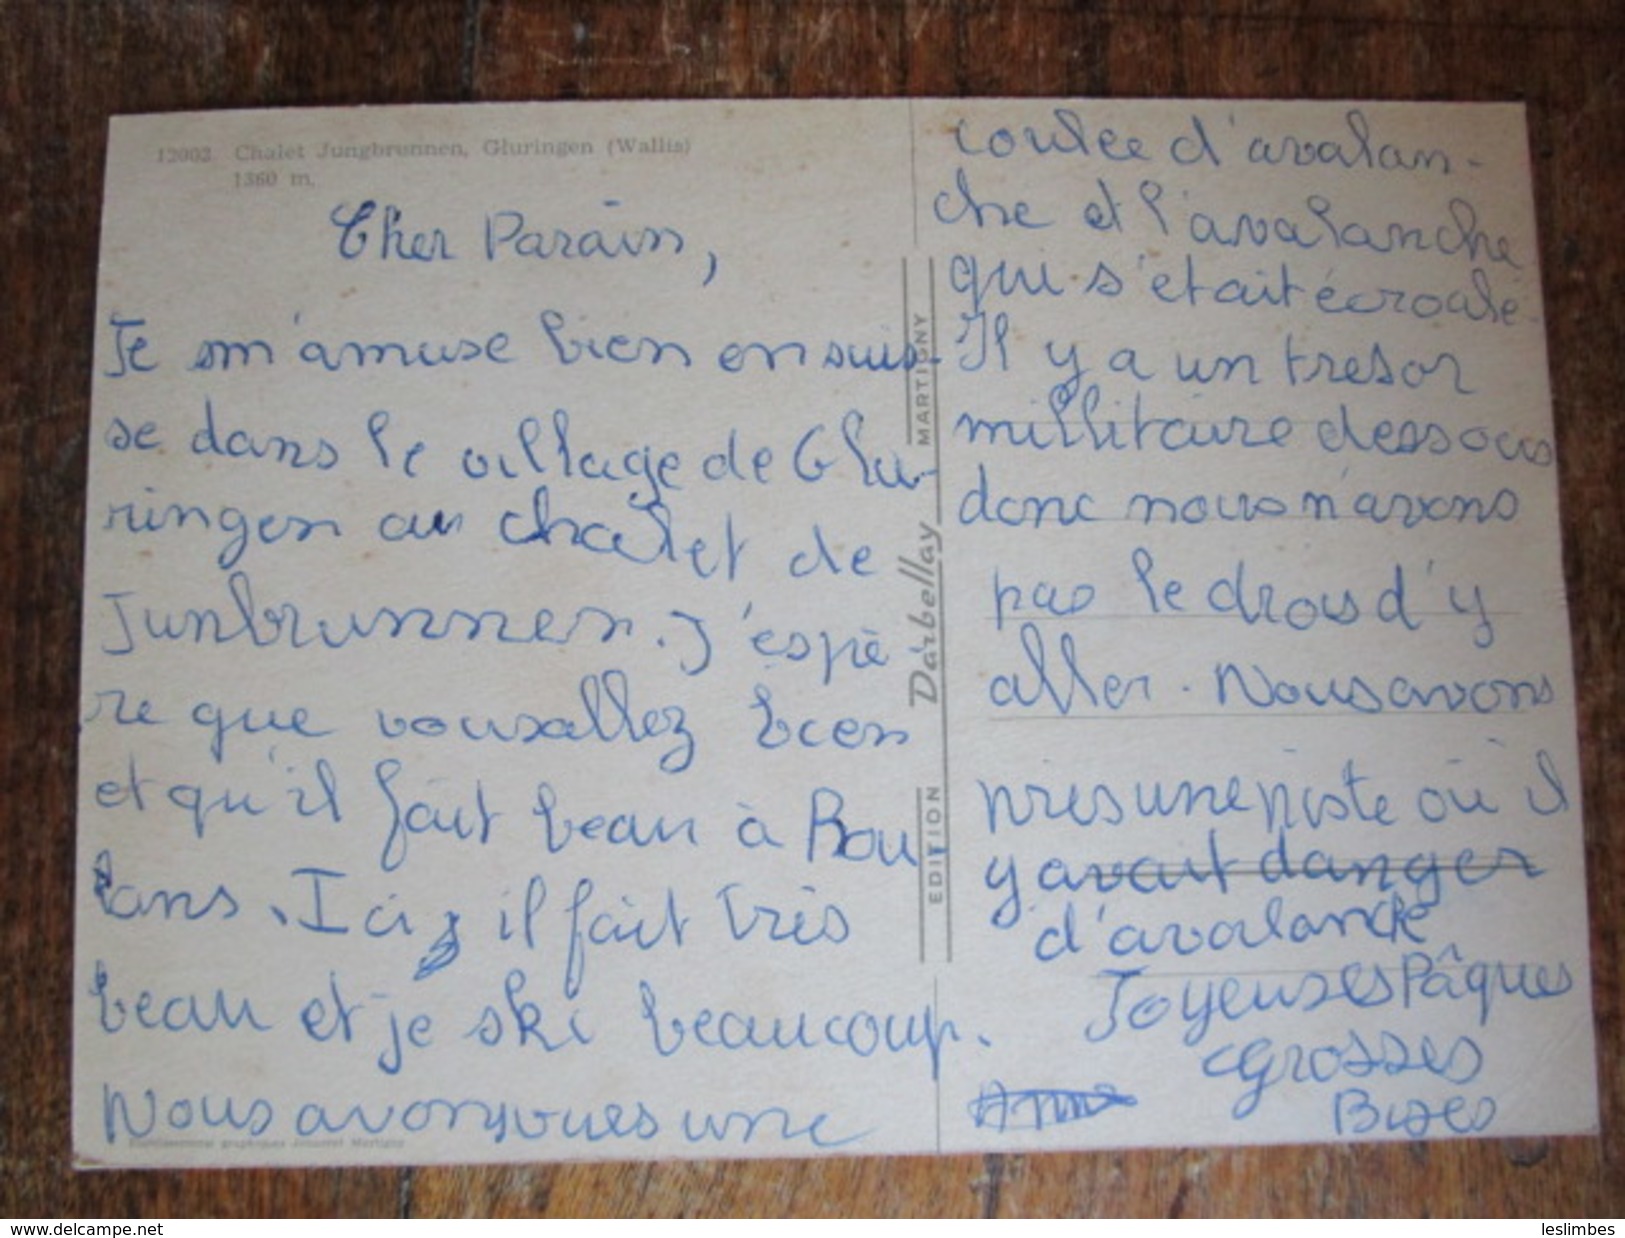 12002 Chalet Jungbrunnen, Gluringen (Wallis)
1360 m.
Cher Parain,
Je m'amuse bien en suis-
se dans le village de Glu-
ringen au chalet de
Junbrunnen. J'espè
re que vous allez bien
et qu'il fait beau à Rou
lans. Ici, il fait très
beau et je ski beaucoup.
Nous avons vues une
Etablissements graphiques Martigny
EDITION Darbellay MARTIGNY
coulée d'avalan-
che et l'avalanche
qui s'était écroulé
Il y a un tresor
millitaire dessous
donc nous n'avons
pas le drois d'y
aller. Nous avons
pris une piste où il
y avait danger
d'avalanche
Joyeuses Pâques
Grosses
Bises
www.delcampe.net
leslimbes